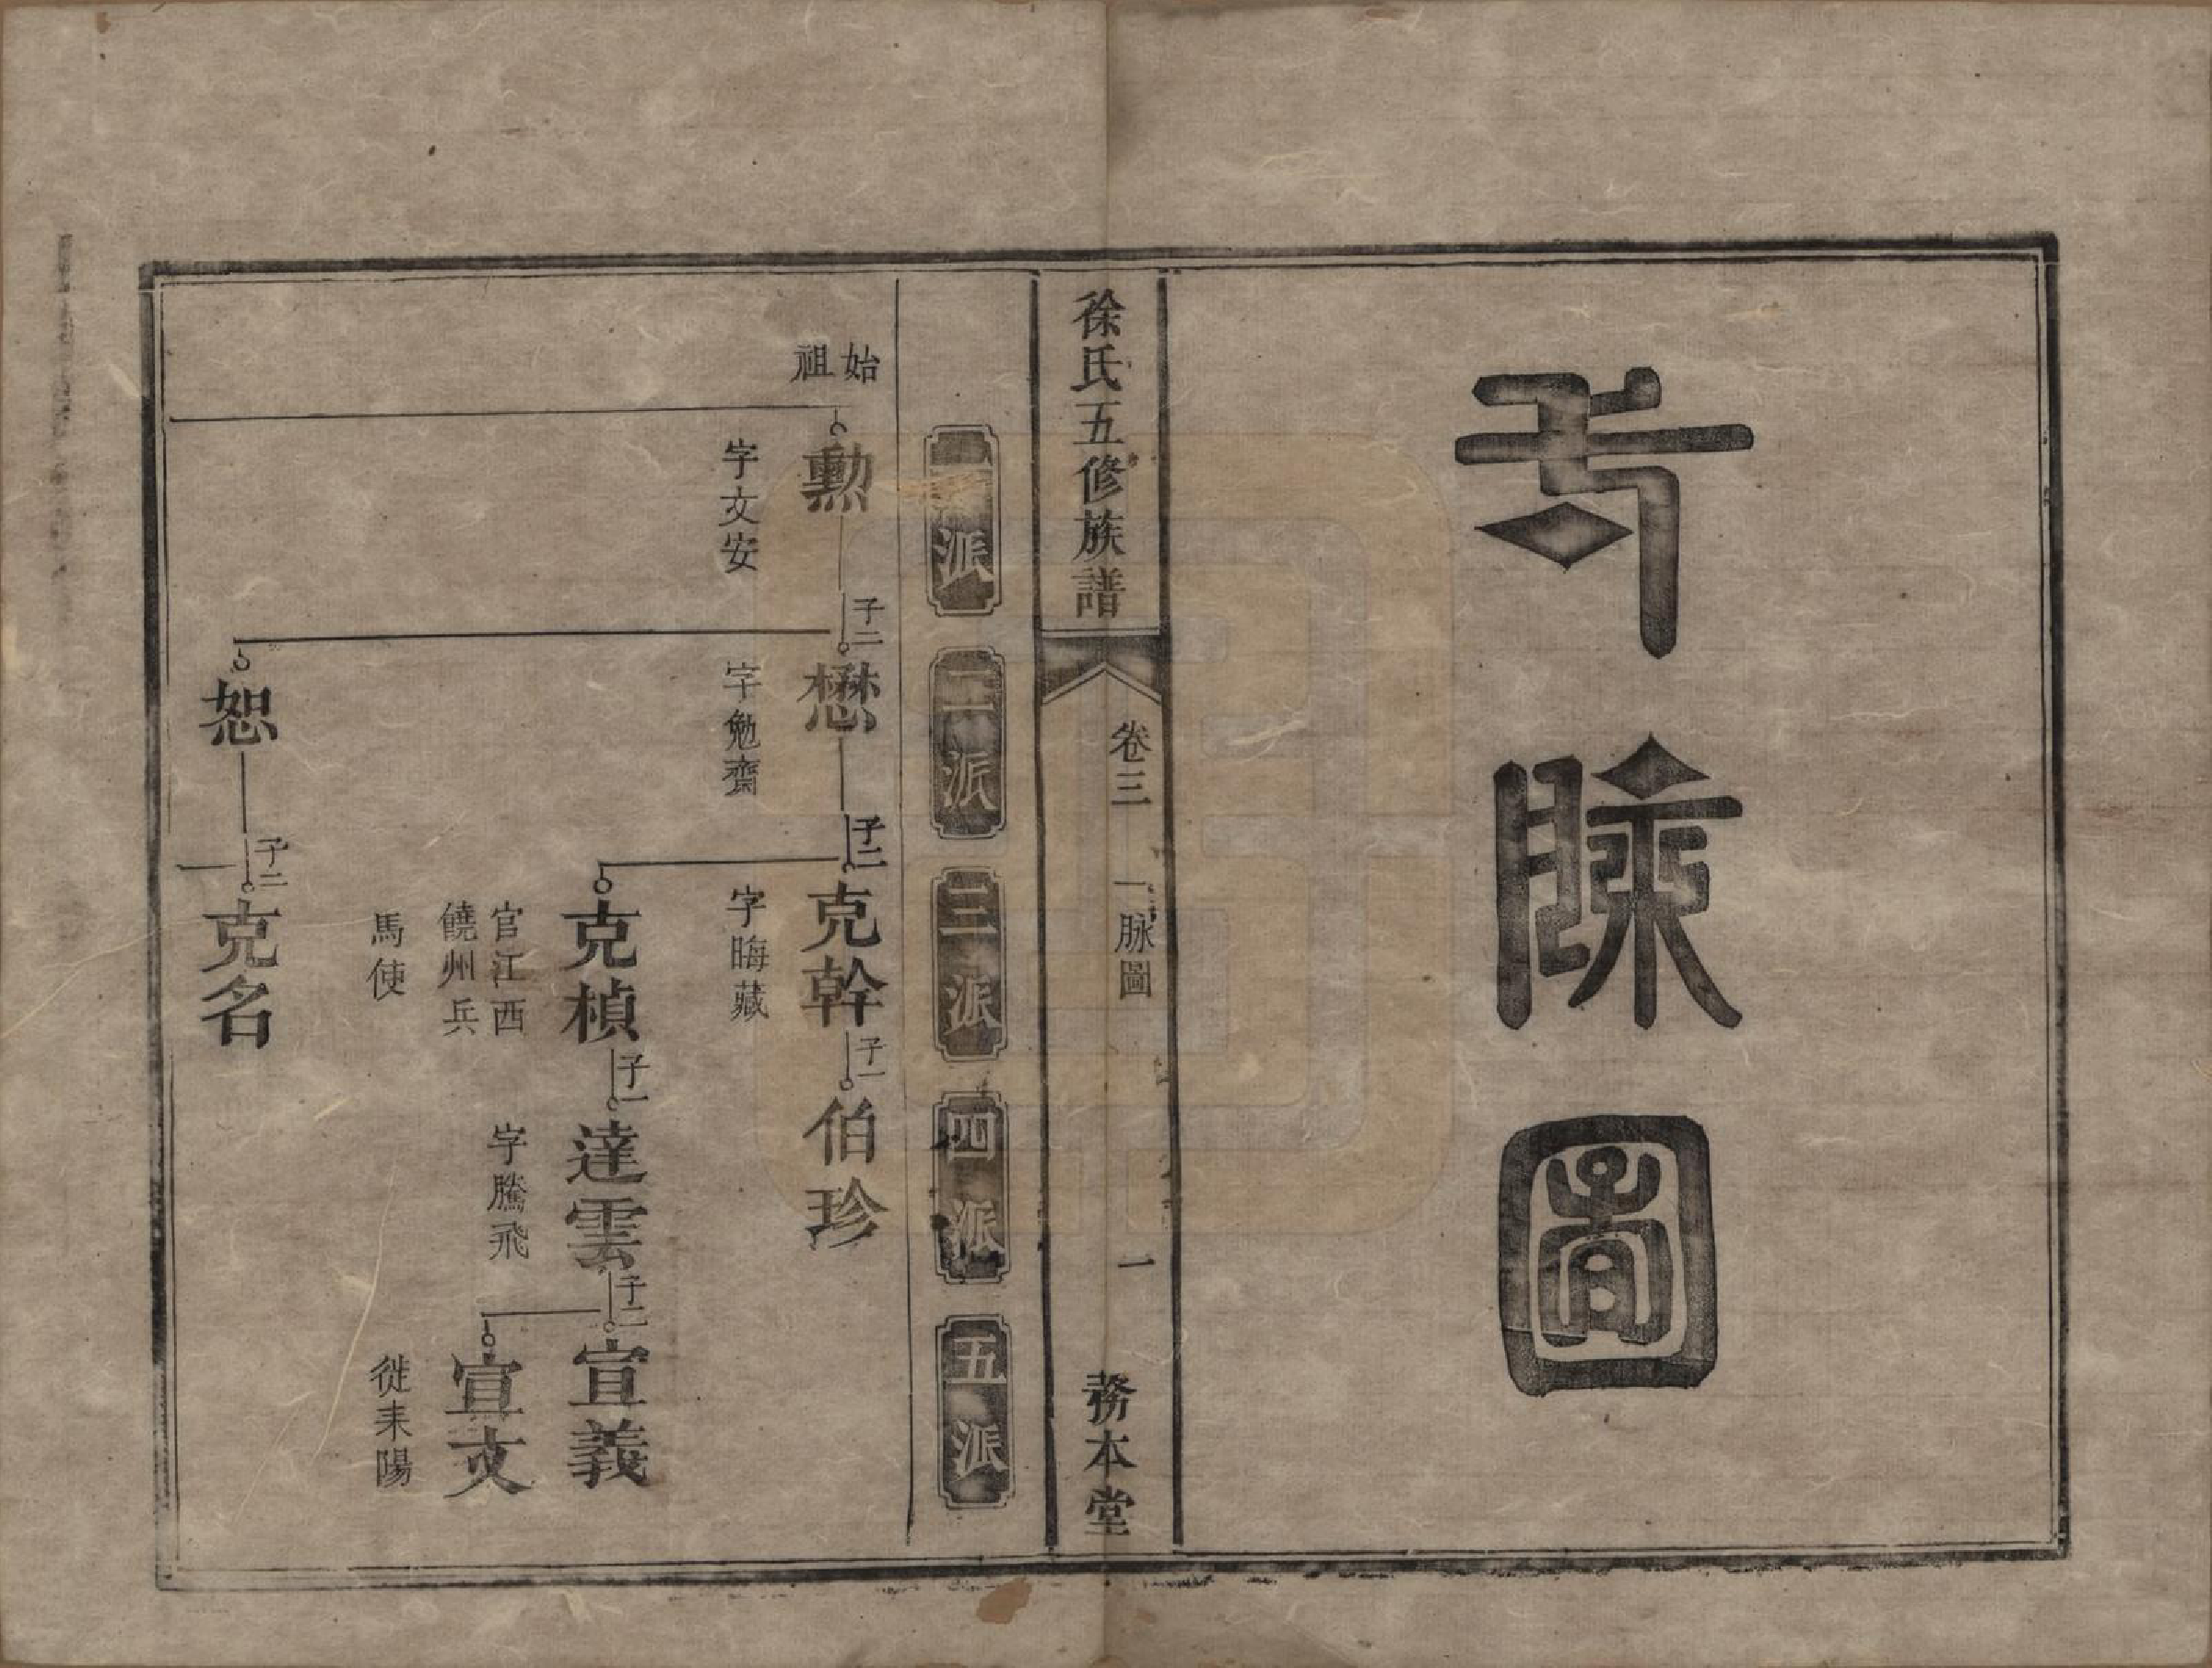 弌脈圖
徐氏五修族譜
卷三 一脉圖 一
務本堂
一派 二派 三派 四派 五派
始祖
勳
字文安
子二
懋
字勉齋
子二
克幹
字晦藏
子一
伯珍
克楨
官江西
饒州兵
馬使
子一
達雲
字騰飛
子二
宣義
宣文
徙耒陽
恕
子二
克名